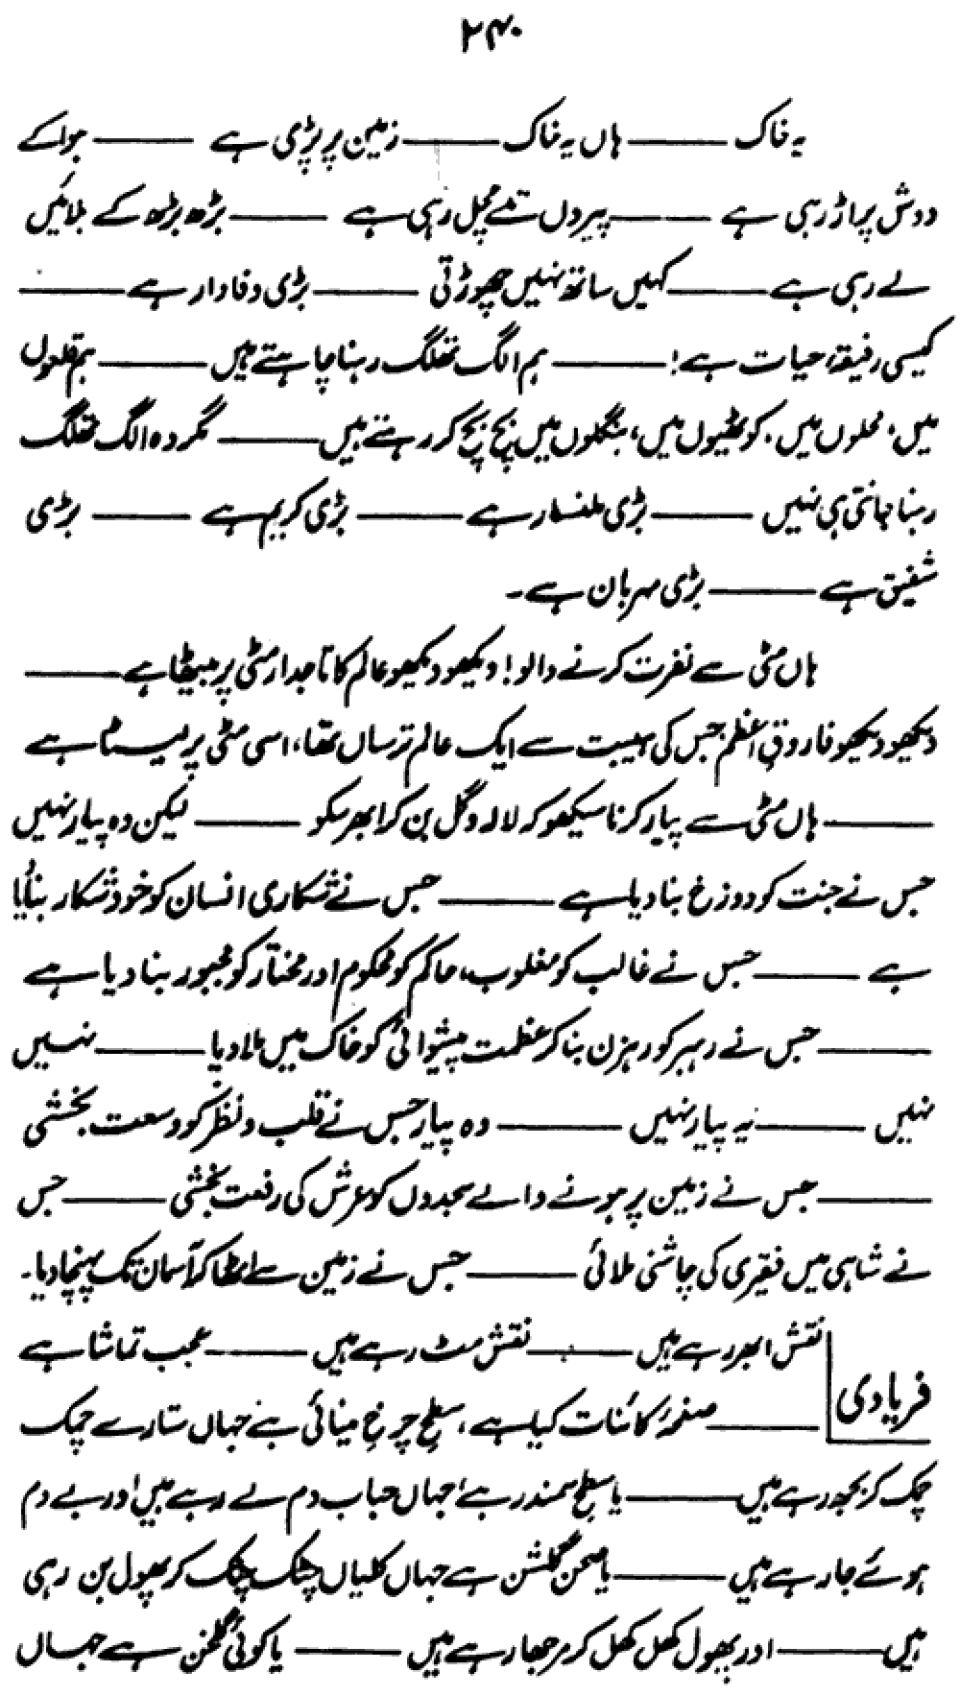 ۲۴۰
یہ خاک ——— ہاں یہ خاک ——— زمین پر پڑی ہے ——— ہوا کے
دوش پر اڑ رہی ہے ——— پیروں تلے مچل رہی ہے ——— بڑھ بڑھ کے بلائیں
لے رہی ہے ——— کہیں ساتھ نہیں چھوڑتی ——— بڑی وفادار ہے ———
کیسی رفیقۂ حیات ہے! ——— ہم الگ تھلگ رہنا چاہتے ہیں ——— ہم قلعوں
میں، محلوں میں، کوٹھیوں میں، بنگلوں میں بچ بچ کر رہتے ہیں ——— مگر وہ الگ تھلگ
رہنا جانتی ہی نہیں ——— بڑی ملنسار ہے ——— بڑی کریم ہے ——— بڑی
شفیق ہے ——— بڑی مہربان ہے۔
ہاں مٹی سے نفرت کرنے والو! دیکھو دیکھو عالم کا تاجدار مٹی پر بیٹھا ہے ———
دیکھو دیکھو فاروقِ اعظم جس کی ہیبت سے ایک عالم ترساں تھا، اسی مٹی پر لیٹا ہے
——— ہاں مٹی سے پیار کرنا سیکھو کہ لالہ و گل بن کر ابھر سکو ——— لیکن وہ پیار نہیں
جس نے جنت کو دوزخ بنا دیا ہے ——— جس نے شکاری انسان کو خود شکار بنایا
ہے ——— جس نے غالب کو مغلوب، حاکم کو محکوم اور مختار کو مجبور بنا دیا ہے
——— جس نے رہبر کو رہزن بنا کر عظمت پیشوائی کو خاک میں ملا دیا ——— نہیں
نہیں ——— یہ پیار نہیں ——— وہ پیار جس نے قلب و نظر کو وسعت بخشی
——— جس نے زمین پر ہونے والے سجدوں کو عرش کی رفعت بخشی ——— جس
نے شاہی میں فقیری کی چاشنی ملائی ——— جس نے زمین سے اٹھا کر آسمان تک پہنچا دیا۔
فریادی
نقش ابھر رہے ہیں ——— نقش مٹ رہے ہیں ——— عجب تماشا ہے
——— صفحۂ کائنات کیا ہے، سطحِ چرخِ مینائی ہے جہاں ستارے چمک
چمک کر بجھ رہے ہیں ——— یا سطحِ سمندر ہے جہاں حباب دم لے رہے ہیں اور بے دم
ہوئے جا رہے ہیں ——— یا صحن گلشن ہے جہاں کلیاں چٹک چٹک کر پھول بن رہی
ہیں ——— اور پھول کھل کھل کر مرجھا رہے ہیں ——— یا کوئی گلخن ہے جہاں